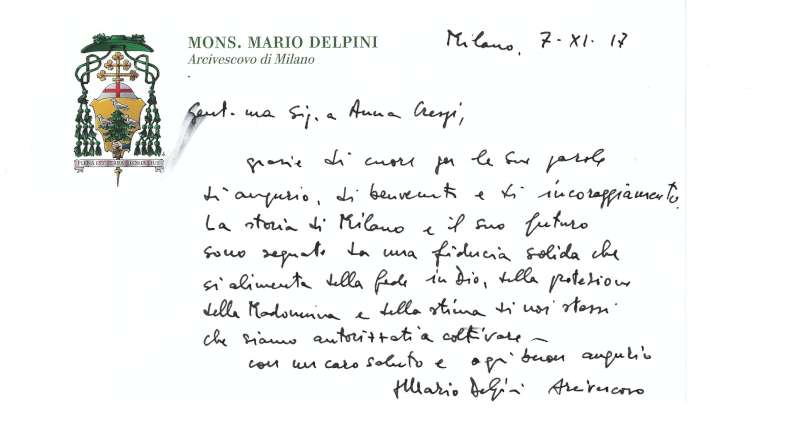 MONS. MARIO DELPINI
Arcivescovo di Milano
Milano, 7-XI-17
Gent.ma Sig.a Anna Crespi,
grazie di cuore per le Sue parole
di augurio, di benvenuto e di incoraggiamento.
La storia di Milano e il suo futuro
sono segnate da una fiducia solida che
si alimenta della fede in Dio, della protezione
della Madonnina e della stima di noi stessi
che siamo autorizzati a coltivare -
con un caro saluto e ogni buon augurio
+ Mario Delpini Arcivescovo